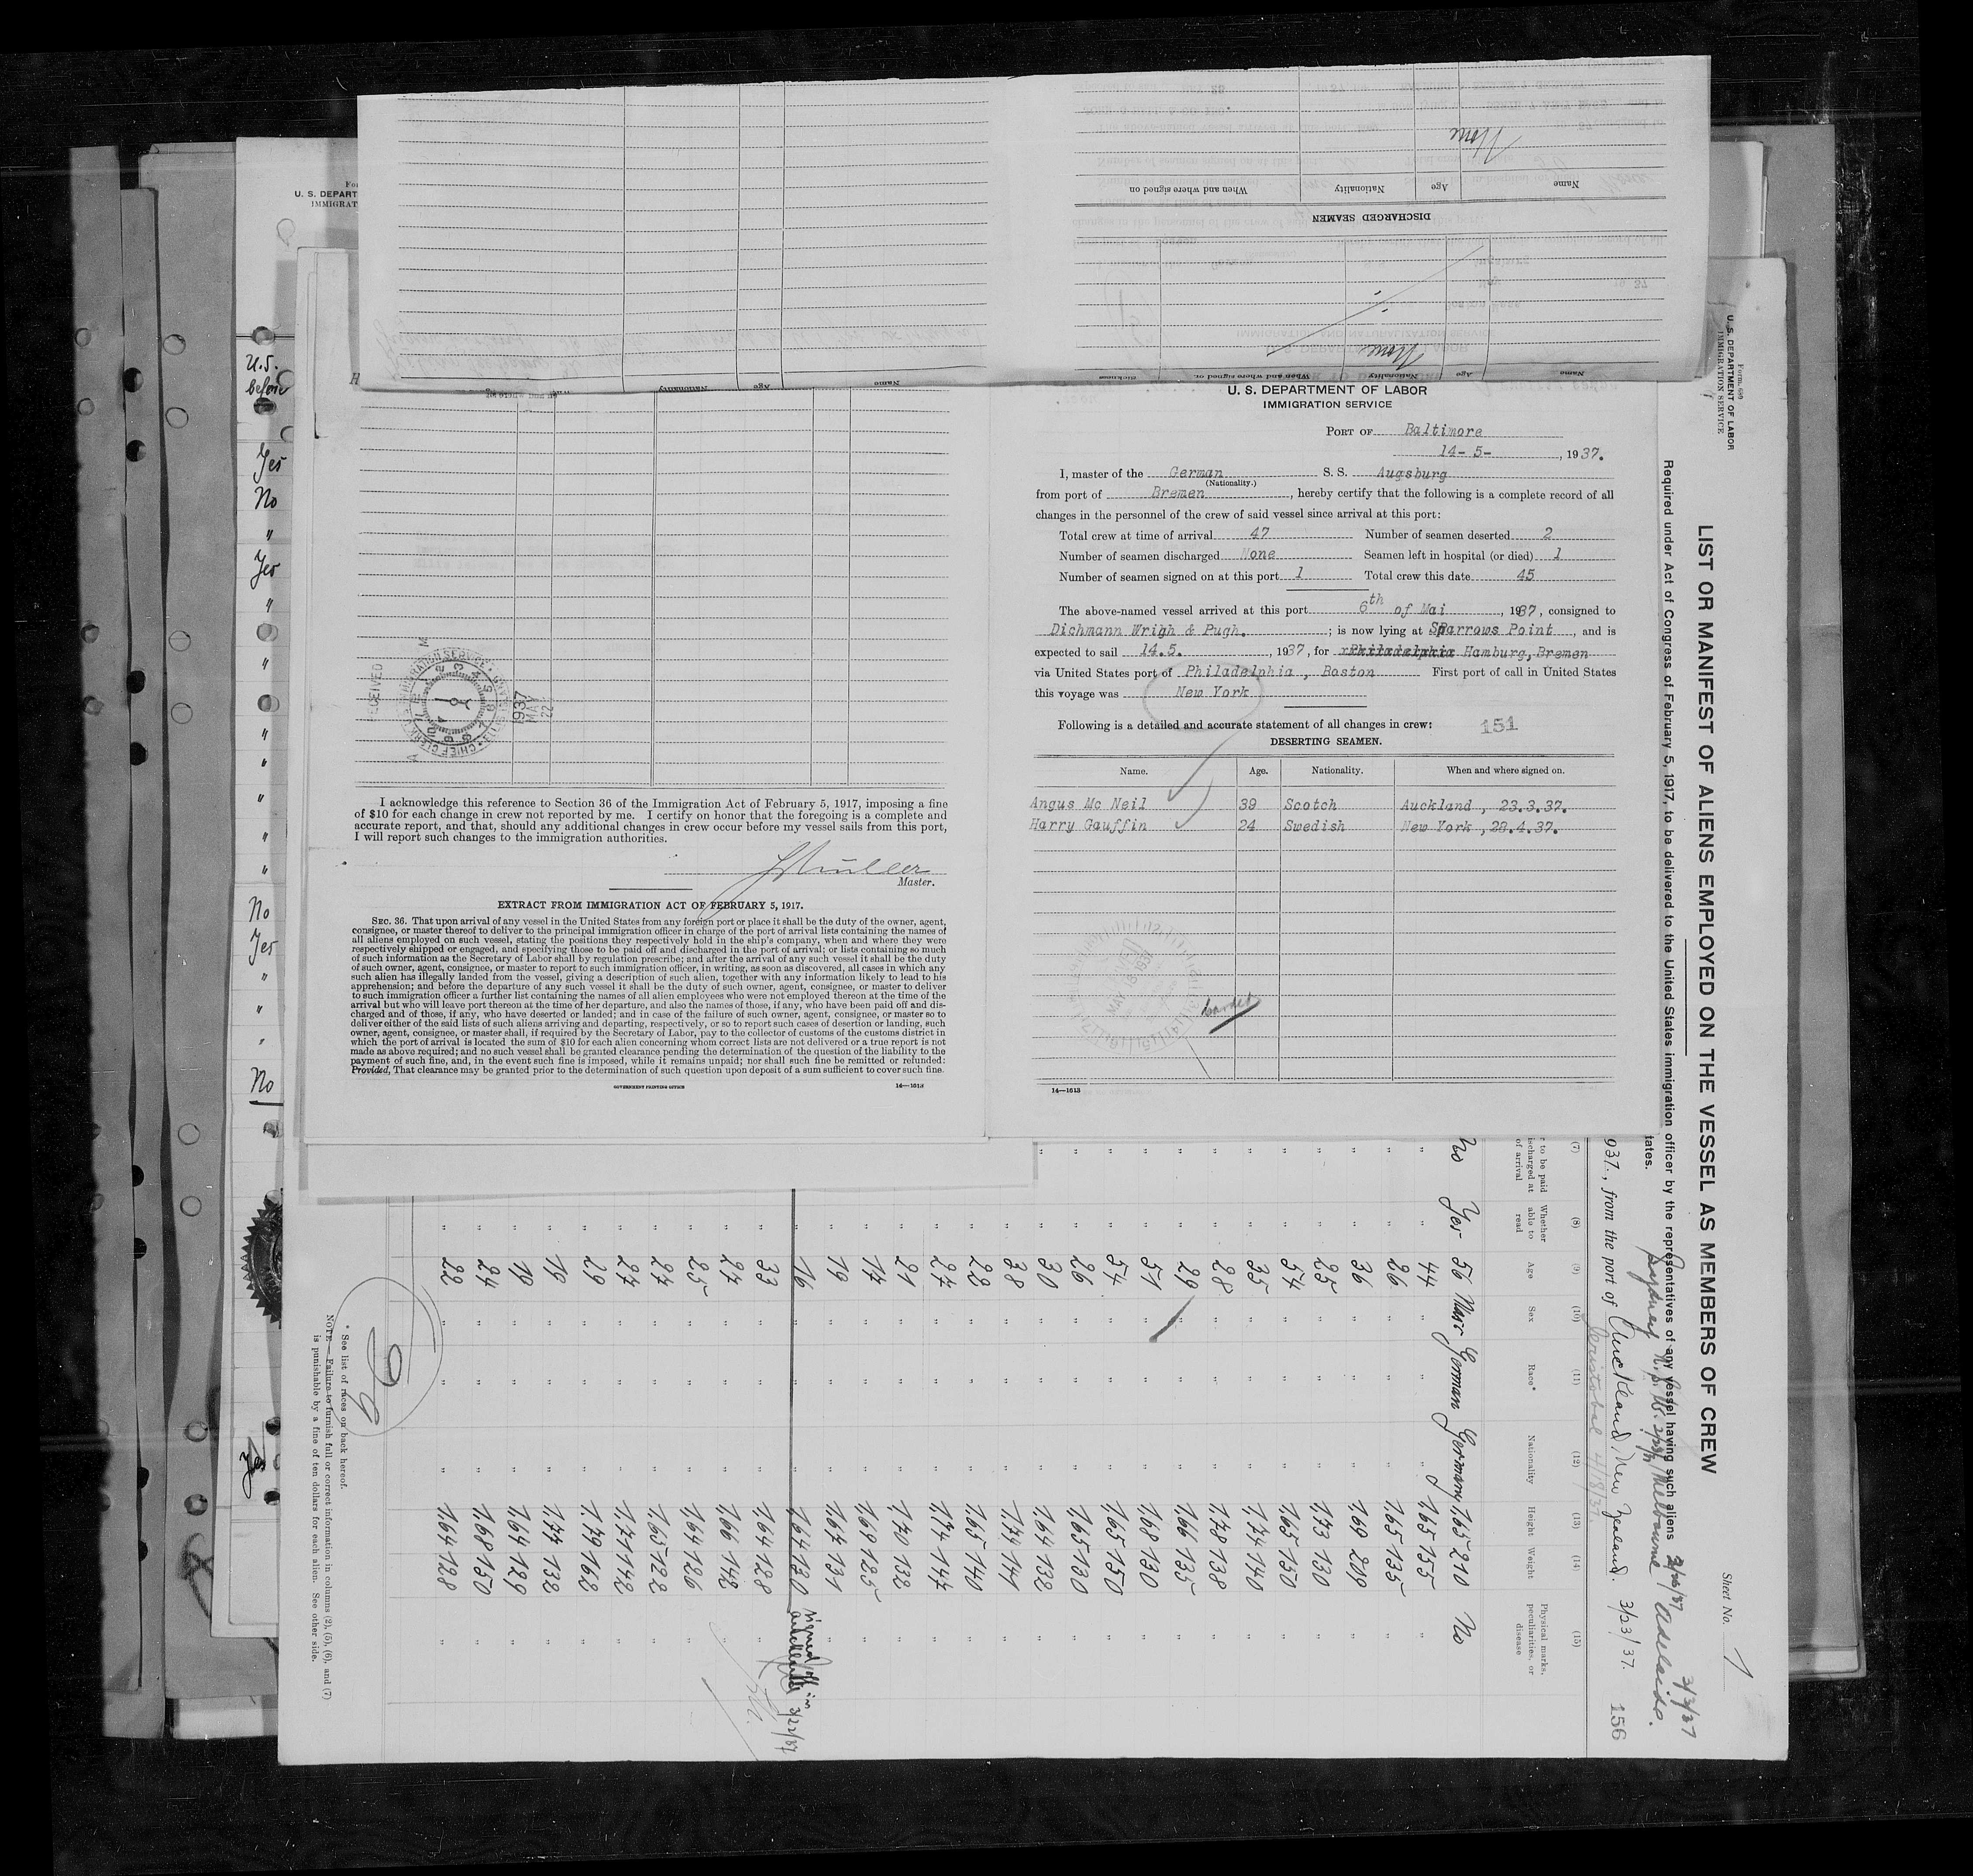 DISCHARGED SEAMEN
Name
Age
Nationality
When and where signed on
None
None
U. S. DEPARTMENT OF LABOR
IMMIGRATION SERVICE
PORT OF Baltimore
14- 5- , 1937.
I, master of the German S. S. Augsburg
(Nationality.)
from port of Bremen, hereby certify that the following is a complete record of all
changes in the personnel of the crew of said vessel since arrival at this port:
Total crew at time of arrival 47 Number of seamen deserted 2
Number of seamen discharged None Seamen left in hospital (or died) 1
Number of seamen signed on at this port 1 Total crew this date 45
The above-named vessel arrived at this port 6th of Mai, 1937, consigned to
Dichmann Wrigh & Pugh. ; is now lying at Sparrows Point, and is
expected to sail 14.5. , 1937, for Philadelphia Hamburg, Bremen
via United States port of Philadelphia, Boston First port of call in United States
this voyage was New York
Following is a detailed and accurate statement of all changes in crew: 151
DESERTING SEAMEN.
Name. Age. Nationality. When and where signed on.
Angus Mc Neil 39 Scotch Auckland, 23.3.37.
Harry Gauffin 24 Swedish New York, 28.4.37.
MAY 18 1937
14—1613
I acknowledge this reference to Section 36 of the Immigration Act of February 5, 1917, imposing a fine
of $10 for each change in crew not reported by me. I certify on honor that the foregoing is a complete and
accurate report, and that, should any additional changes in crew occur before my vessel sails from this port,
I will report such changes to the immigration authorities.
Master.
EXTRACT FROM IMMIGRATION ACT OF FEBRUARY 5, 1917.
SEC. 36. That upon arrival of any vessel in the United States from any foreign port or place it shall be the duty of the owner, agent,
consignee, or master thereof to deliver to the principal immigration officer in charge of the port of arrival lists containing the names of
all aliens employed on such vessel, stating the positions they respectively hold in the ship's company, when and where they were
respectively shipped or engaged, and specifying those to be paid off and discharged in the port of arrival; or lists containing so much
of such information as the Secretary of Labor shall by regulation prescribe; and after the arrival of any such vessel it shall be the duty
of such owner, agent, consignee, or master to report to such immigration officer, in writing, as soon as discovered, all cases in which any
such alien has illegally landed from the vessel, giving a description of such alien, together with any information likely to lead to his
apprehension; and before the departure of any such vessel it shall be the duty of such owner, agent, consignee, or master to deliver
to such immigration officer a further list containing the names of all alien employees who were not employed thereon at the time of the
arrival but who will leave port thereon at the time of her departure, and also the names of those, if any, who have been paid off and dis-
charged and of those, if any, who have deserted or landed; and in case of the failure of such owner, agent, consignee, or master so to
deliver either of the said lists of such aliens arriving and departing, respectively, or so to report such cases of desertion or landing, such
owner, agent, consignee, or master shall, if required by the Secretary of Labor, pay to the collector of customs of the customs district in
which the port of arrival is located the sum of $10 for each alien concerning whom correct lists are not delivered or a true report is not
made as above required; and no such vessel shall be granted clearance pending the determination of the question of the liability to the
payment of such fine, and, in the event such fine is imposed, while it remains unpaid; nor shall such fine be remitted or refunded:
Provided, That clearance may be granted prior to the determination of such question upon deposit of a sum sufficient to cover such fine.
GOVERNMENT PRINTING OFFICE 14—1613
1937 MAY 22
U. S. DEPART
IMMIGRAT
U.S.
before
Yes
No
"
Yes
"
"
"
"
"
"
"
No
Yes
"
"
"
No
Form 689
U. S. DEPARTMENT OF LABOR
IMMIGRATION SERVICE
Sheet No. 1
LIST OR MANIFEST OF ALIENS EMPLOYED ON THE VESSEL AS MEMBERS OF CREW
Required under Act of Congress of February 5, 1917, to be delivered to the United States immigration officer by the representatives of any vessel having such aliens
tates.
Sydney N.S.W. Melbourne Adelaide. 3/3/37
937., from the port of Auckland, New Zealand. 3/23/37.
Cristobal 4/18/37.
156
(7) (8) (9) (10) (11) (12) (13) (14) (15)
to be paid
ischarged at
of arrival
Whether able to read
Age
Sex
Race*
Nationality
Height
Weight
Physical marks, peculiarities, or disease
No Yes 56 Masc German Germany 1.65 210 No
44 1.65 155
26 1.65 135
36 1.69 209
25 1.73 130
54 1.65 150
35 1.74 140
28 1.78 138
29 1.66 135
51 1.68 130
54 1.65 150
26 1.65 130
30 1.64 132
38 1.74 141
22 1.65 140
27 1.74 144
21 1.70 132
17 1.69 125
19 1.67 131
16 1.64 130 signed off in Auckland 3/22/37
33 1.64 128
27 1.66 142
25 1.64 126
27 1.65 122
27 1.71 142
29 1.79 162
19 1.74 132
19 1.64 129
24 1.68 150
22 1.64 128
* See list of races on back hereof.
NOTE.—Failure to furnish full or correct information in columns (2), (5), (6), and (7)
is punishable by a fine of ten dollars for each alien. See other side.